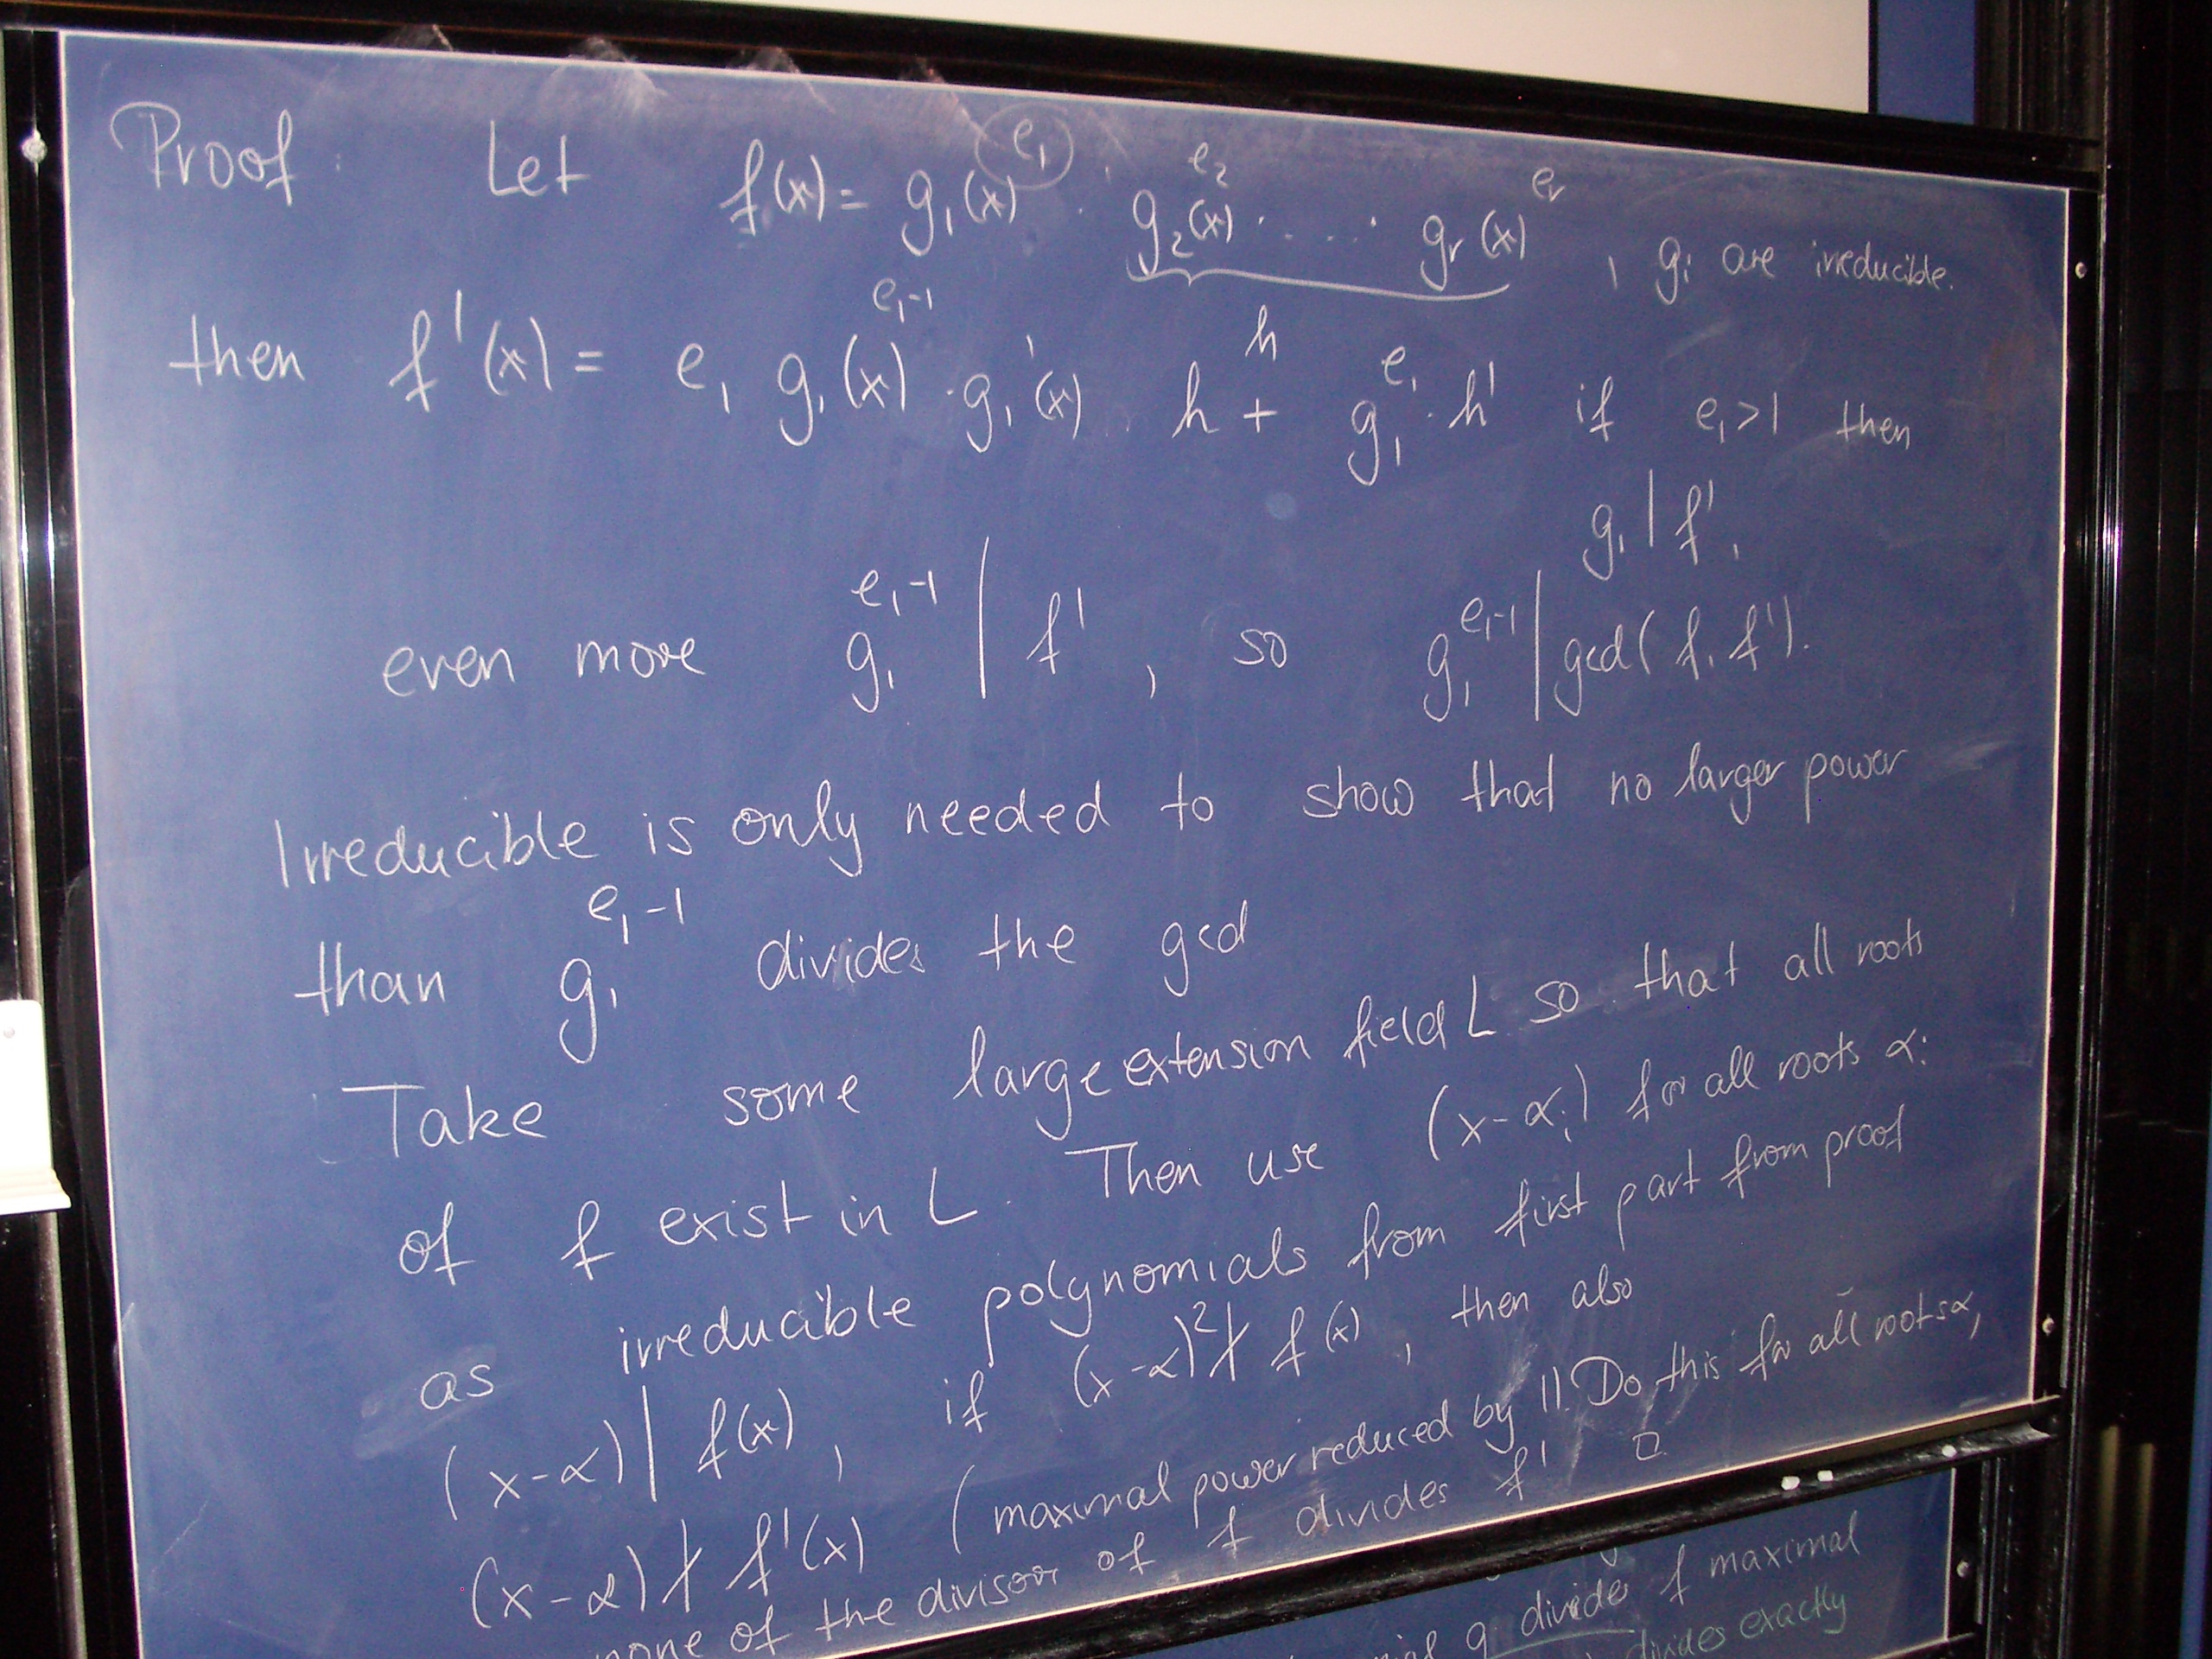 Proof. Let f(x) = g₁(x)^e₁ · g₂(x)^e₂ · .... · gᵣ(x)^eᵣ , gᵢ are irreducible.
h
then f'(x) = e₁ g₁(x)^(e₁-1) · g₁'(x) h + g₁^e₁ · h' if e₁>1 then
g₁ | f',
even more g₁^(e₁-1) | f' , so g₁^(e₁-1) | gcd(f, f').
Irreducible is only needed to show that no larger power
than g₁^(e₁-1) divides the gcd
Take some large extension field L so that all roots
of f exist in L. Then use (x-αᵢ) for all roots αᵢ
as irreducible polynomials from first part from proof
(x-α) | f(x) , if (x-α)² ∤ f(x) , then also
(x-α) ∤ f'(x) (maximal power reduced by 1). Do this for all roots α,
none of the divisors of f divides f' □
g divide f maximal
divides exactly